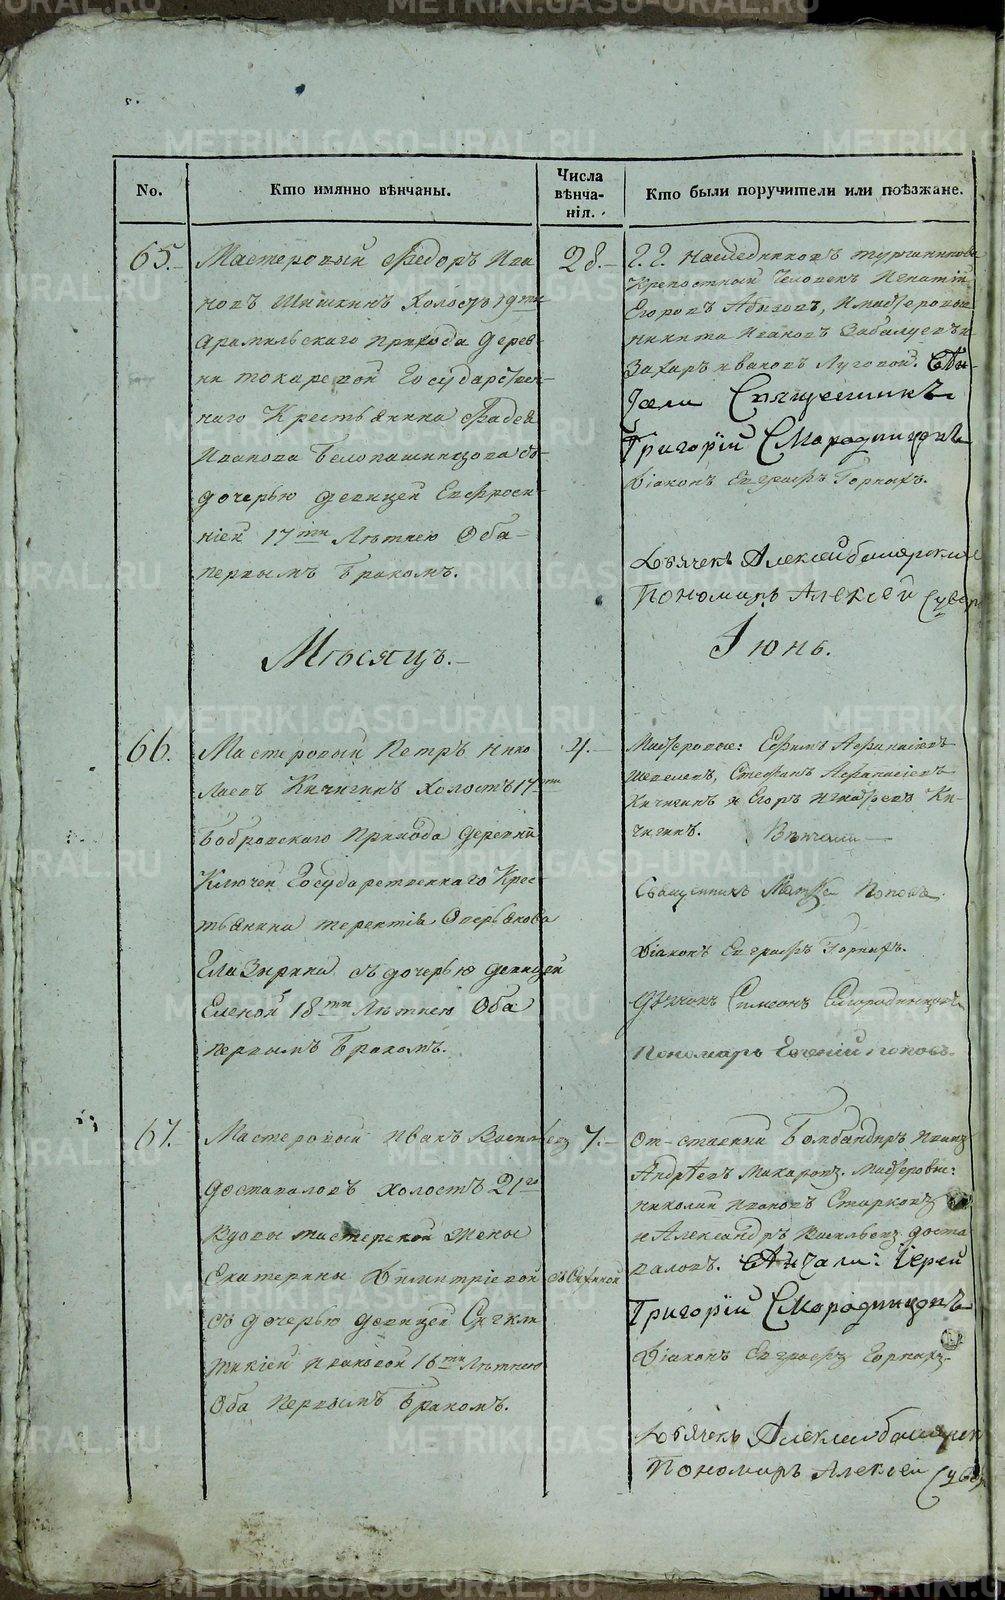 No.
Кто имянно вѣнчаны.
Числа
вѣнча-
нія.
Кто были поручители или поѣзжане.
65.
Мастеровый Федоръ Ива
новъ Шишкинъ Холостъ 19ти
Арамильскаго Прихода дерев-
ни токаревой Государствен-
наго Крестьянина Фадея
Иванова Белопашинцова съ
дочерью девицей Евфросин-
ніей 17ти Лѣтнею Оба
первымъ Бракомъ.
28.
Г. Г. Наследниковъ турчаниновы
Крепостный Человекъ Игнатій
Егоровъ, Имастеровые
никита Ивановъ и
Захаръ ивановъ Луговой. Вѣн-
чали Священникъ
Григорій Смородинцовъ
Діаконъ Евграфъ Горныхъ.
Дьячекъ Алексей
Пономарь Алексей
Мѣсяцъ.
Іюнь.
66.
Мастеровый Петръ Нико
лаевъ Кичигинъ Холостъ 17ти
Бобровскаго Прихода деревни
Ключей Государственнаго Крес-
тьянина терентія
Глазырина съ дочерью девицей
Еленой 18ти Лѣтнею Оба
первымъ Бракомъ.
4.
Мастеровые: Ефимъ
Шепелевъ, Стефанъ Афанасіевъ
Кичигинъ и Егоръ Игнатьевъ Ки-
чигинъ. Вѣнчали
Священникъ Матфей Поповъ.
Діаконъ Евграфъ Горныхъ.
Дьячокъ Симеонъ Смородинцовъ
Пономарь Евгеній поповъ.
67.
Мастеровый Иванъ Васильевъ
Доставаловъ холостъ 21го
Вдовы мастерской жены
Екатерины Димитріевой
съ дочерью девицей Сигкли
тикіей Ивановой 16ти Лѣтнею
Оба первымъ Бракомъ.
7.
От-ставный Бомбандиръ Иванъ
Андреевъ Макаровъ. Мастеровые:
николай ивановъ Старковъ
и Александръ Васильевъ доста
валовъ. Вѣнчали: Іерей
Григорій Смородинцовъ
Діаконъ Евграфъ Горныхъ
Дьячекъ Алексей
Пономарь Алексей
METRIKI.GASO-URAL.RU